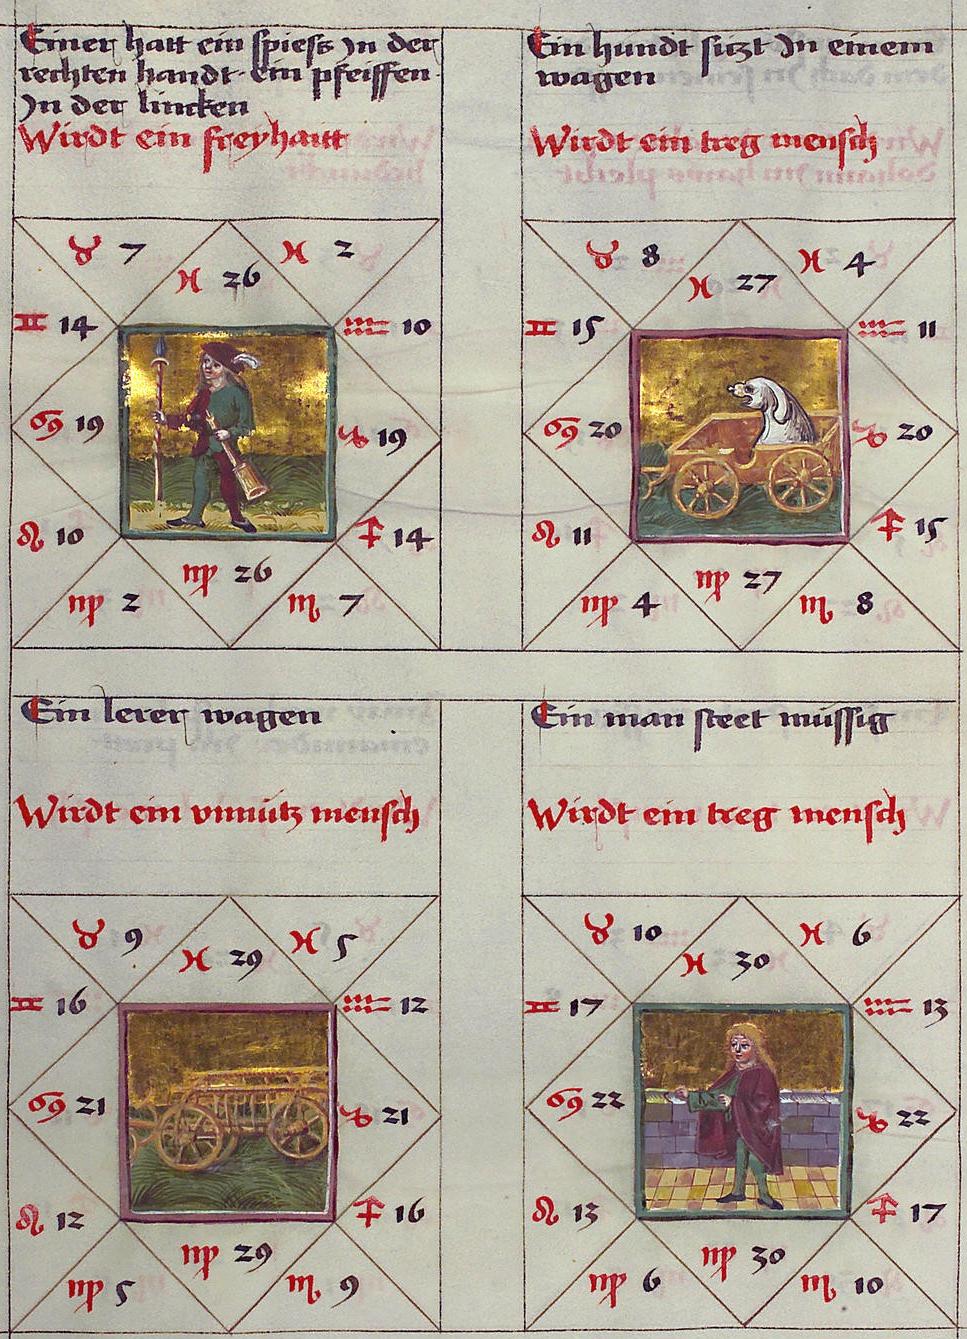 Einer hatt ein spiess Jn der
rechten handt· Ein pfeiffen·
Jn der lincken
Wirdt ein freyhaitt
♉ 7
♓ 26
♓ 2
♊ 14
♒ 10
♋ 19
♑ 19
♌ 10
♐ 14
♍ 2
♍ 26
♏ 7
Ein hundt sizt Jn einem
wagen
Wirdt ein treg mensch
♉ 8
♓ 27
♓ 4
♊ 15
♒ 11
♋ 20
♑ 20
♌ 11
♐ 15
♍ 4
♍ 27
♏ 8
Ein lerer wagen
Wirdt ein vnnütz mensch
♉ 9
♓ 29
♓ 5
♊ 16
♒ 12
♋ 21
♑ 21
♌ 12
♐ 16
♍ 5
♍ 29
♏ 9
Ein man steet müssig
Wirdt ein treg mensch
♉ 10
♓ 30
♓ 6
♊ 17
♒ 13
♋ 22
♑ 22
♌ 13
♐ 17
♍ 6
♍ 30
♏ 10